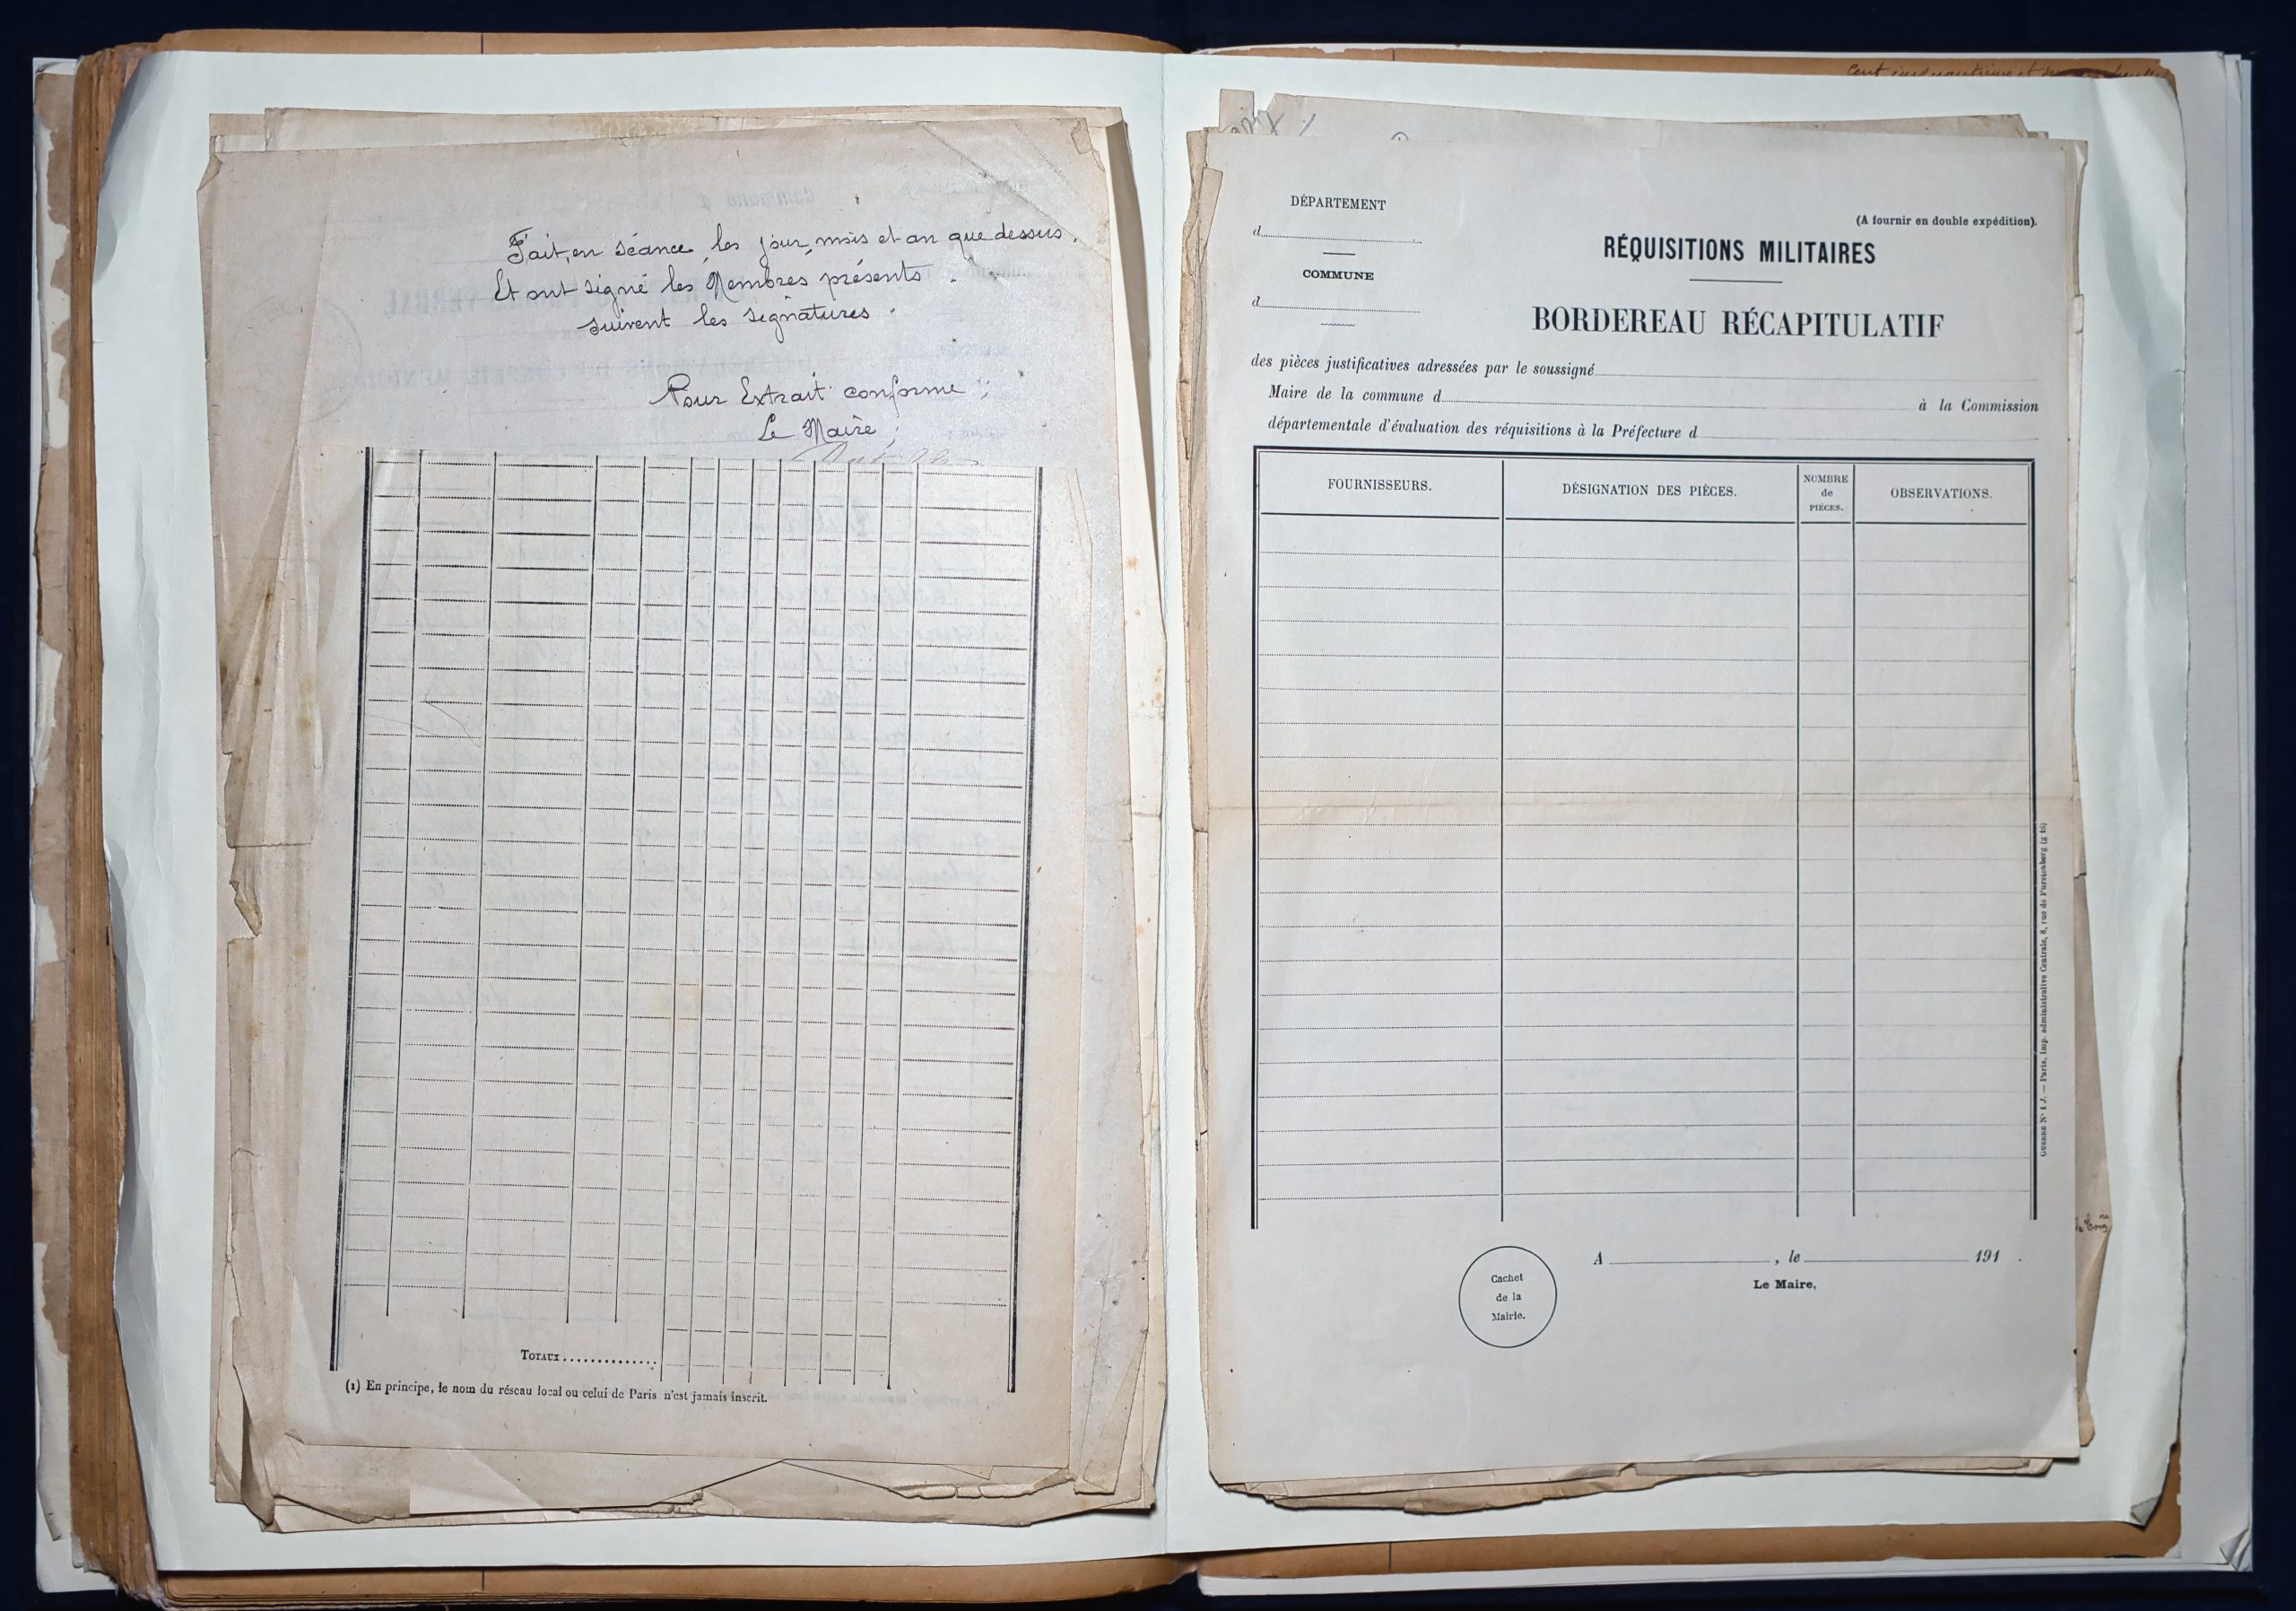 Fait, en séance, les jour, mois et an que dessus.
Et ont signé les Membres présents.
suivent les signatures.
Pour Extrait conforme;
Le Maire,
TOTAUX
(1) En principe, le nom du réseau local ou celui de Paris n'est jamais inscrit.
DÉPARTEMENT
d
COMMUNE
d
(A fournir en double expédition).
RÉQUISITIONS MILITAIRES
BORDEREAU RÉCAPITULATIF
des pièces justificatives adressées par le soussigné
Maire de la commune d à la Commission
départementale d'évaluation des réquisitions à la Préfecture d
FOURNISSEURS.
DÉSIGNATION DES PIÈCES.
NOMBRE
de
PIÈCES.
OBSERVATIONS.
GUERRE N° 1 J. — Paris, Imp. administrative Centrale, 8, rue de Furstenberg
A , le 191 .
Le Maire,
Cachet
de la
Mairie.